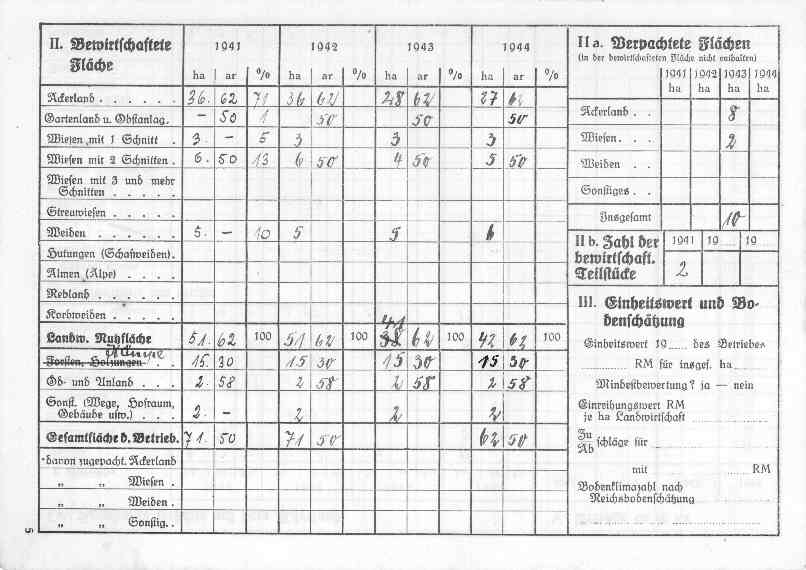 II. Bewirtschaftete Fläche 1941 1942 1943 1944
ha ar % ha ar % ha ar % ha ar %
Ackerland . . . . . . 36. 62 71 36 62 28 62 27 62
Gartenland u. Obstanlag. – 50 1 50 50 50
Wiesen mit 1 Schnitt . 3. – 5 3 3 3
Wiesen mit 2 Schnitten . 6. 50 13 6 50 4 50 5 50
Wiesen mit 3 und mehr
Schnitten . . . . .
Streuwiesen . . . . .
Weiden . . . . . . 5. – 10 5 5 6
Hutungen (Schafweiden).
Almen (Alpe) . . . .
Rebland . . . . . .
Korbweiden . . . . .
41
Landw. Nutzfläche 51. 62 100 51 62 100 38 62 100 42 62 100
Forsten, Holzungen . . . 15. 30 15 30 15 30 15 30
Öd- und Unland . . . 2. 58 2 58 2 58 2 58
Sonst. (Wege, Hofraum,
Gebäude usw.) . . . 2. – 2 2 2
Gesamtfläche d. Betrieb. 71. 50 71 50 62 50
davon zugepacht. Ackerland
„ „ Wiesen .
„ „ Weiden .
„ „ Sonstig. .
5
IIa. Verpachtete Flächen
(in der bewirtschafteten Fläche nicht enthalten)
1941 1942 1943 1944
ha ha ha ha
Ackerland . . 8
Wiesen. . . 2
Weiden . .
Sonstiges . .
Insgesamt 10
IIb. Zahl der bewirtschaft. Teilstücke 1941 19 19
2
III. Einheitswert und Bo-
denschätzung
Einheitswert 19 des Betriebes
RM für insges. ha
Mindestbewertung? ja — nein
Einreihungswert RM
je ha Landwirtschaft
Zu
Ab schläge für
mit RM
Bodenklimazahl nach
Reichsbodenschätzung